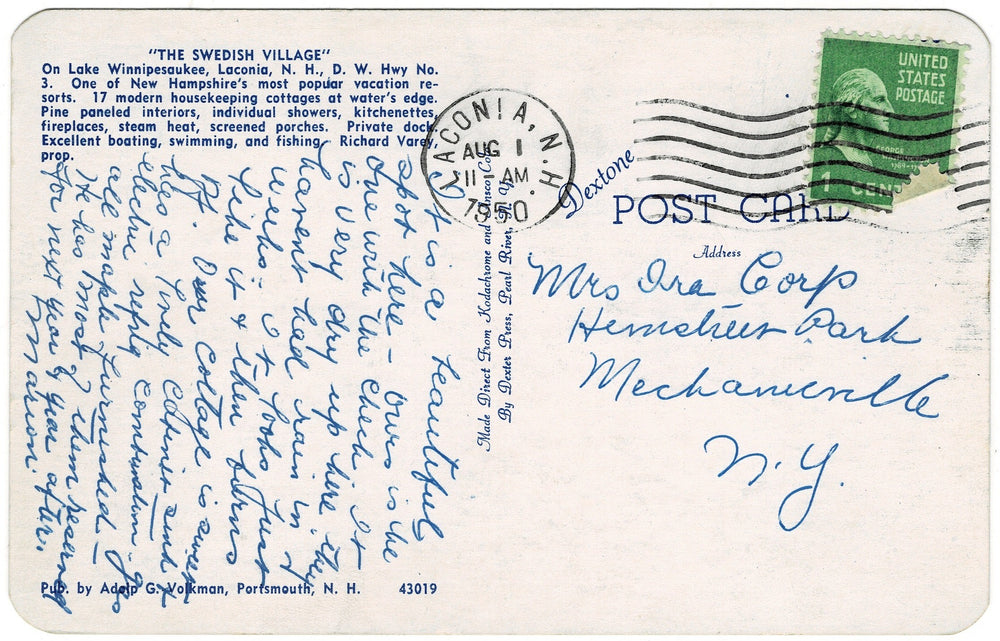 "THE SWEDISH VILLAGE"
On Lake Winnipesaukee, Laconia, N. H., D. W. Hwy No.
3. One of New Hampshire's most popular vacation re-
sorts. 17 modern housekeeping cottages at water's edge.
Pine paneled interiors, individual showers, kitchenettes,
fireplaces, steam heat, screened porches. Private dock.
Excellent boating, swimming, and fishing. Richard Varey,
prop.
It is a beautiful
spot here – ours is the
one with the check. It
is very dry up here they
havent had rain in 7
weeks. It looks just
like it & then turns
off. Our cottage is swell
has a lovely cabinet sink &
electric refrig combination gas
all maple furnished. –
He has most of them reserved
for next year & year after.
Marion.
Pub. by Adolp G. Volkman, Portsmouth, N. H. 43019
Made Direct From Kodachrome and Ansco Color
By Dexter Press, Pearl River, N. Y.
LACONIA, N.H.
AUG 1
11 - AM
1950
UNITED
STATES
POSTAGE
GEORGE
1 CEN
Dextone
POST CARD
Address
Mrs Ira Corp
Hemstreet Park
Mechanicville
N.Y.